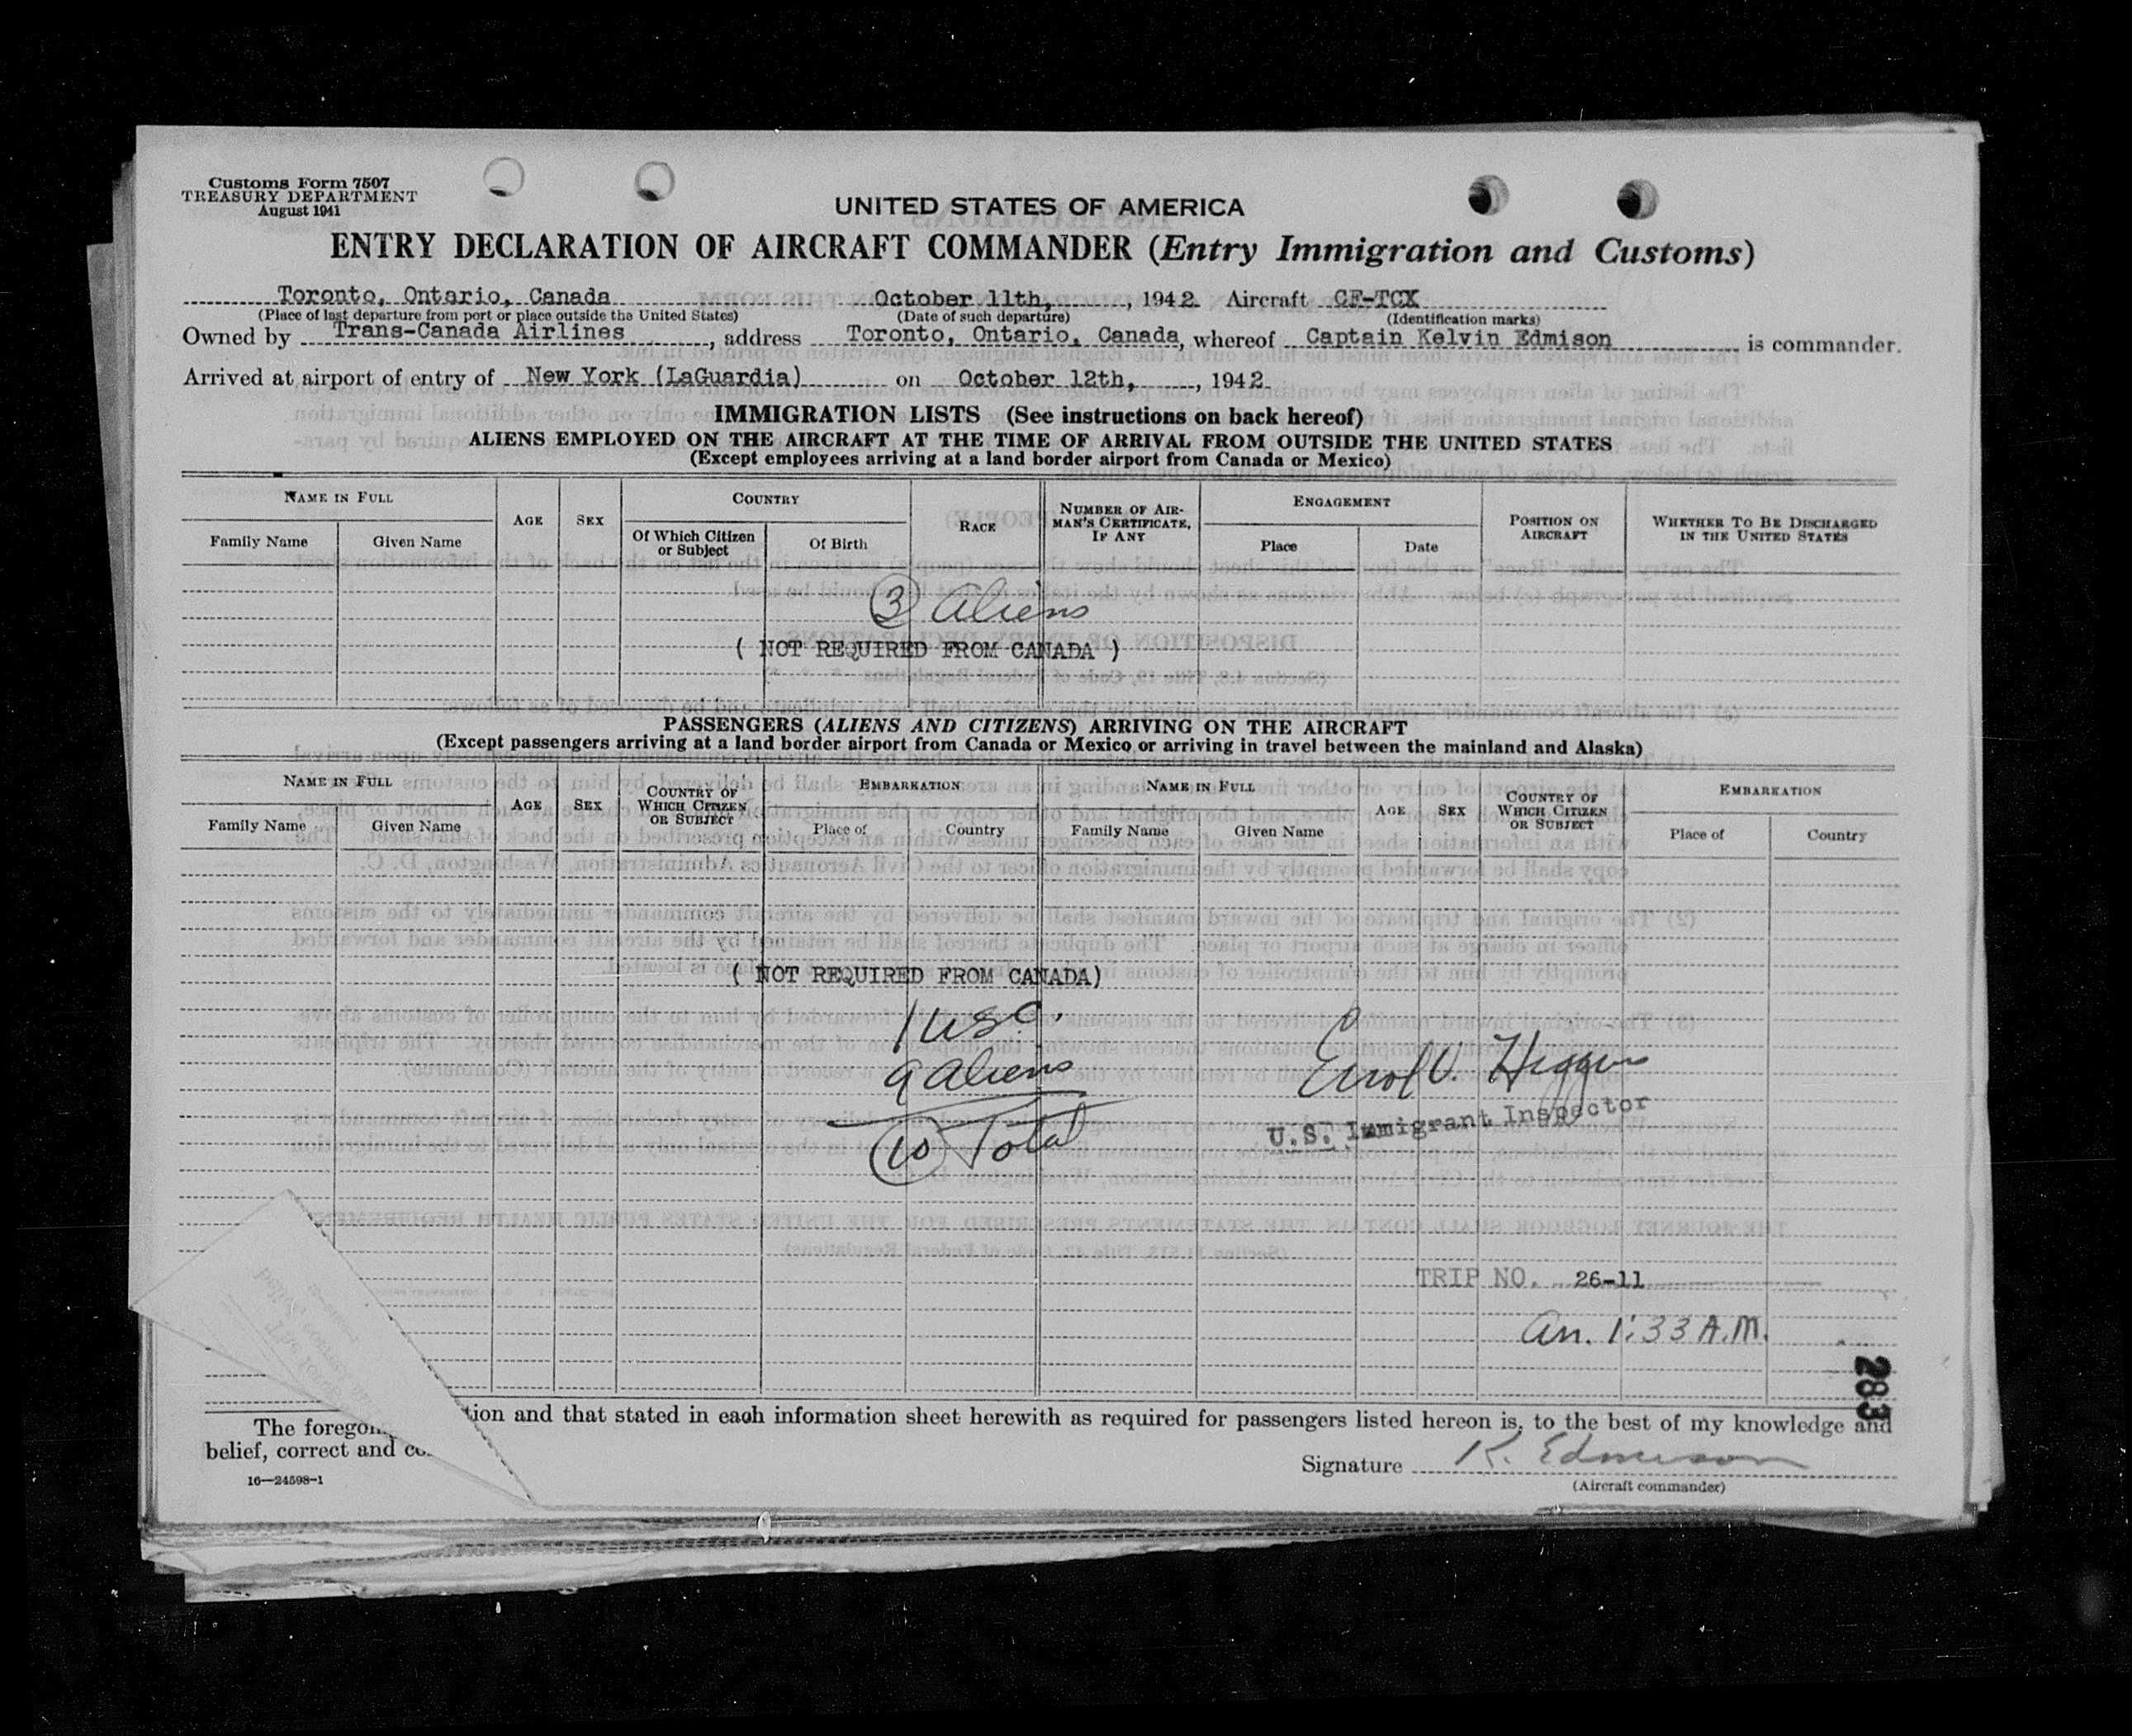 Customs Form 7507
TREASURY DEPARTMENT
August 1941
UNITED STATES OF AMERICA
ENTRY DECLARATION OF AIRCRAFT COMMANDER (Entry Immigration and Customs)
Toronto, Ontario, Canada October 11th, , 1942 Aircraft CF-TCX
(Place of last departure from port or place outside the United States) (Date of such departure) (Identification marks)
Owned by Trans-Canada Airlines , address Toronto, Ontario, Canada, whereof Captain Kelvin Edmison is commander.
Arrived at airport of entry of New York (LaGuardia) on October 12th, , 1942
IMMIGRATION LISTS (See instructions on back hereof)
ALIENS EMPLOYED ON THE AIRCRAFT AT THE TIME OF ARRIVAL FROM OUTSIDE THE UNITED STATES
(Except employees arriving at a land border airport from Canada or Mexico)
NAME IN FULL
Family Name Given Name
AGE
SEX
COUNTRY
Of Which Citizen or Subject Of Birth
RACE
NUMBER OF AIRMAN'S CERTIFICATE, IF ANY
ENGAGEMENT
Place Date
POSITION ON AIRCRAFT
WHETHER TO BE DISCHARGED IN THE UNITED STATES
3 Aliens
( NOT REQUIRED FROM CANADA )
PASSENGERS (ALIENS AND CITIZENS) ARRIVING ON THE AIRCRAFT
(Except passengers arriving at a land border airport from Canada or Mexico or arriving in travel between the mainland and Alaska)
NAME IN FULL
Family Name Given Name
AGE
SEX
COUNTRY OF WHICH CITIZEN OR SUBJECT
EMBARKATION
Place of Country
NAME IN FULL
Family Name Given Name
AGE
SEX
COUNTRY OF WHICH CITIZEN OR SUBJECT
EMBARKATION
Place of Country
( NOT REQUIRED FROM CANADA)
1 USC.
9 Aliens
10 Total
Errol V. Higgins
U.S. Immigrant Inspector
TRIP NO. 26-11
Arr. 1:33 A.M.
283
The foregoing tion and that stated in each information sheet herewith as required for passengers listed hereon is, to the best of my knowledge and
belief, correct and co
16—24598-1
Signature K. Edmison
(Aircraft commander)